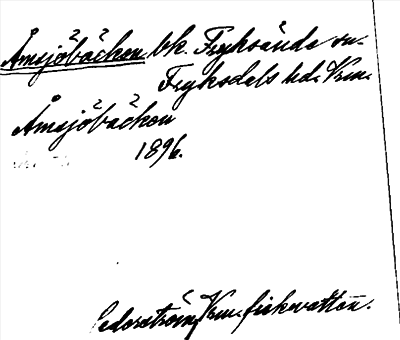 Åmsjöbäcken bk. Fryksände sn.
Fryksdals hd. Vrm.
Åmsjöbäcken
1896.
Cederström, Vrm. fiskvatten.